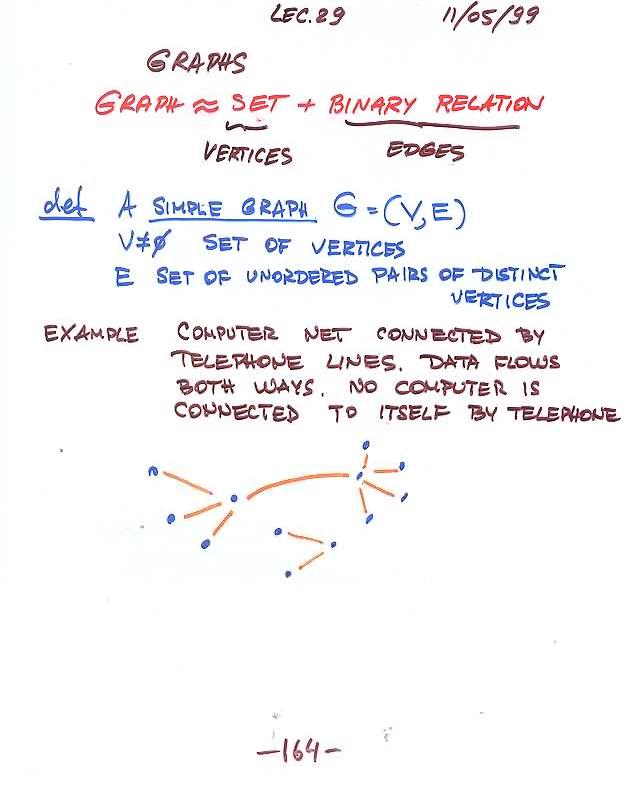 LEC.29 11/05/99
GRAPHS
GRAPH ≈ SET + BINARY RELATION
VERTICES EDGES
def A SIMPLE GRAPH G = (V, E)
V ≠ ∅ SET OF VERTICES
E SET OF UNORDERED PAIRS OF DISTINCT
VERTICES
EXAMPLE COMPUTER NET CONNECTED BY
TELEPHONE LINES. DATA FLOWS
BOTH WAYS. NO COMPUTER IS
CONNECTED TO ITSELF BY TELEPHONE
-164-